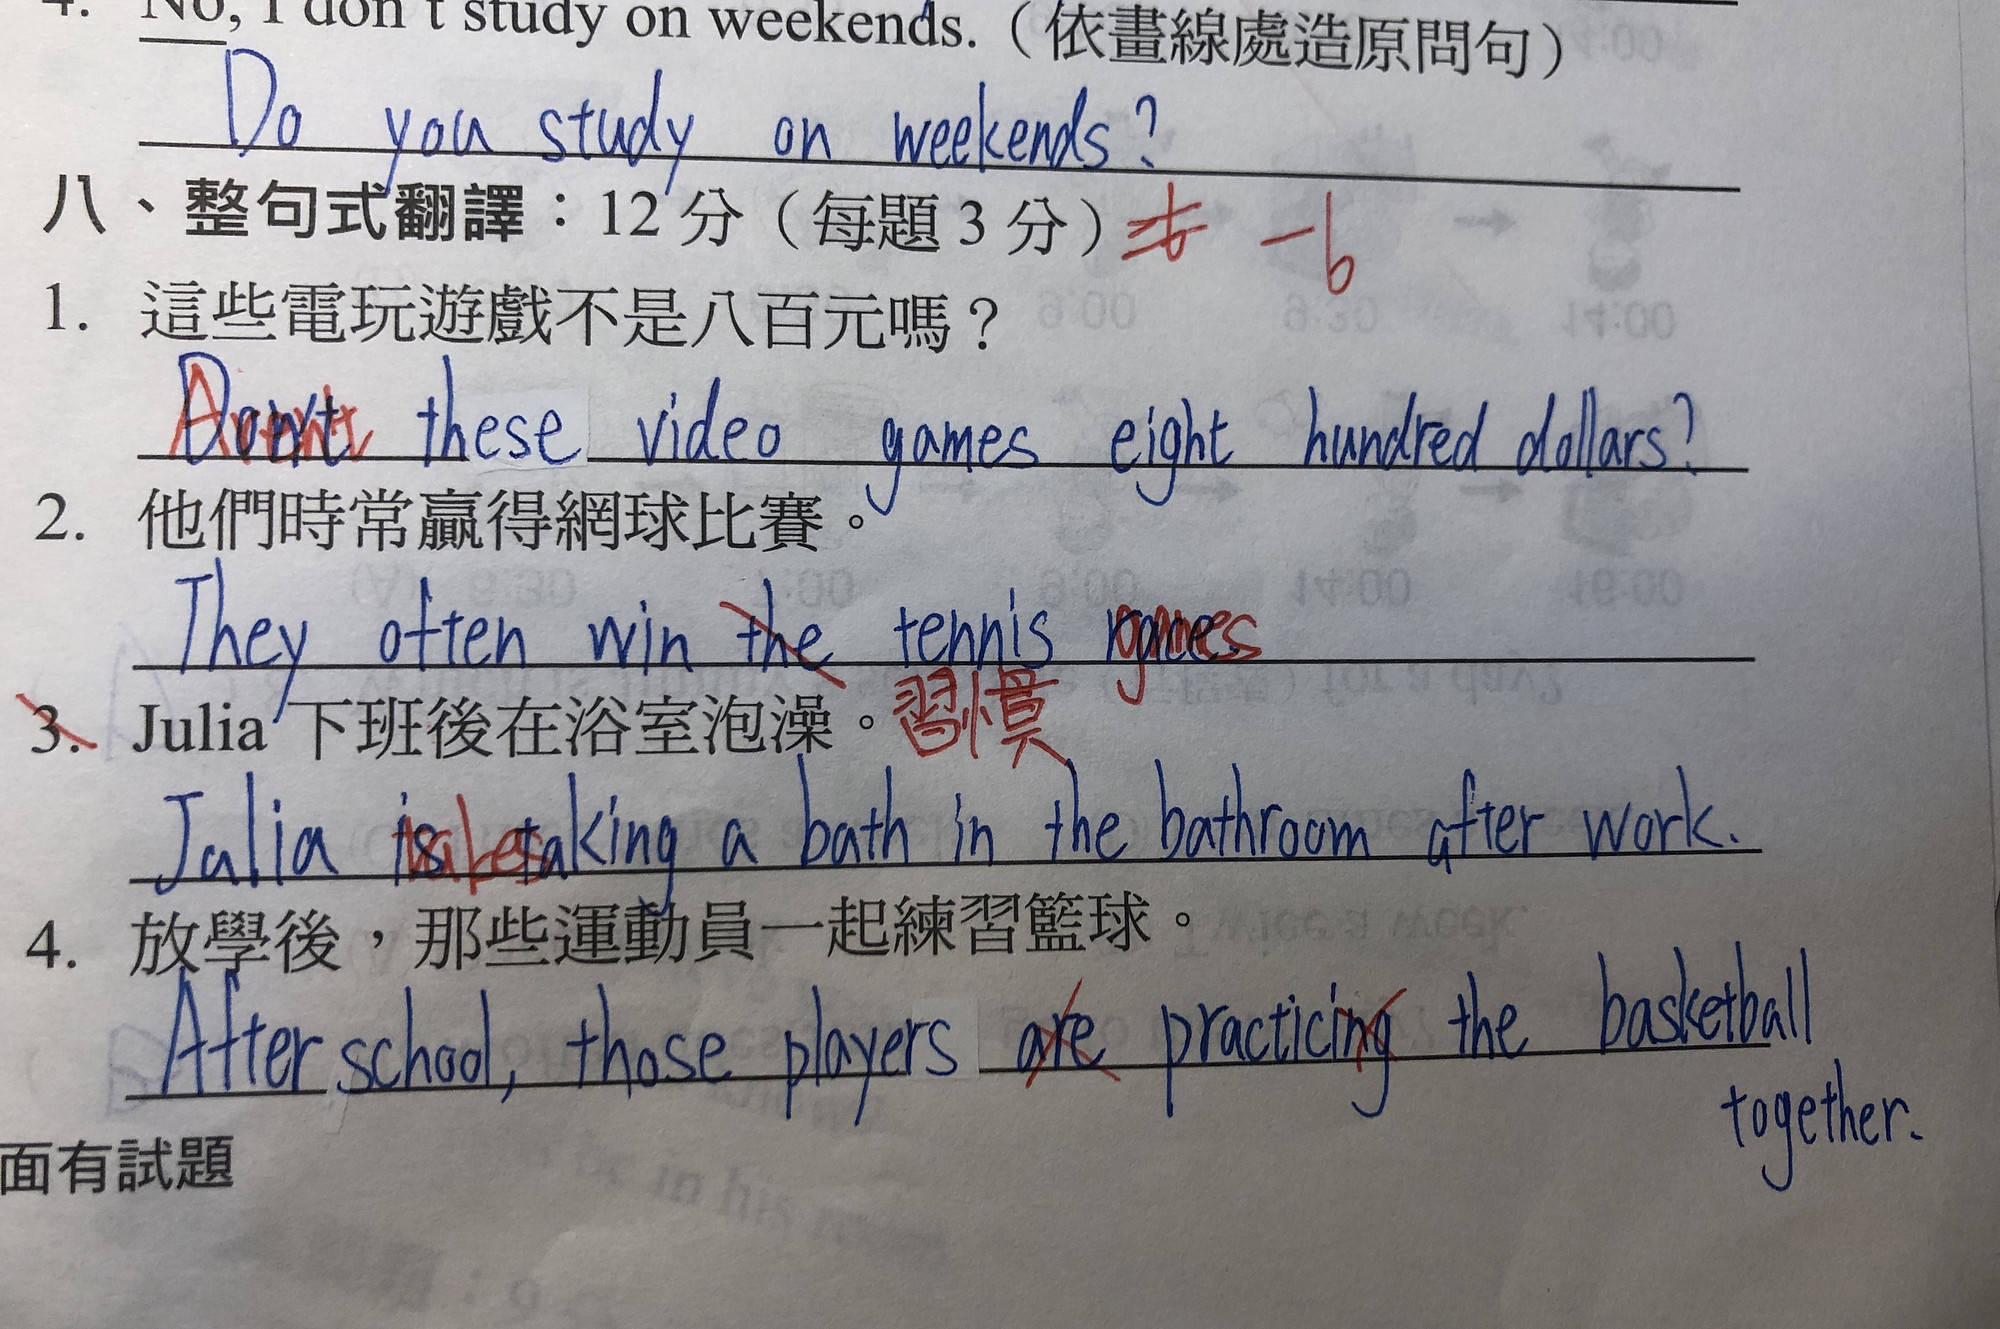 4. No, I don't study on weekends.（依畫線處造原問句）
Do you study on weekends?
八、整句式翻譯：12分（每題3分） -6
1. 這些電玩遊戲不是八百元嗎？
Aren't these video games eight hundred dollars?
2. 他們時常贏得網球比賽。
They often win the tennis games
3. Julia 下班後在浴室泡澡。習慣
Julia is takes taking a bath in the bathroom after work.
4. 放學後，那些運動員一起練習籃球。
After school, those players are practicing the basketball
together.
面有試題